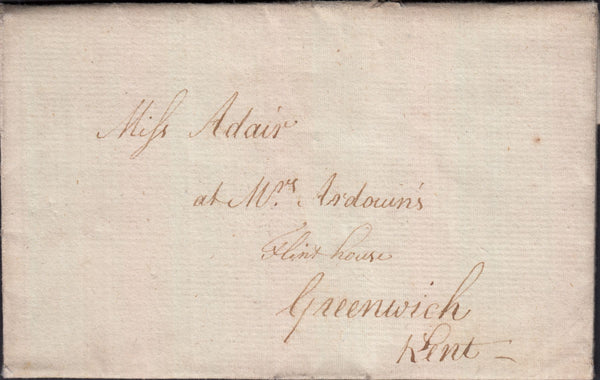 Miſs Adair
at Mrs. Ardouin's
Flint house
Greenwich
Kent –